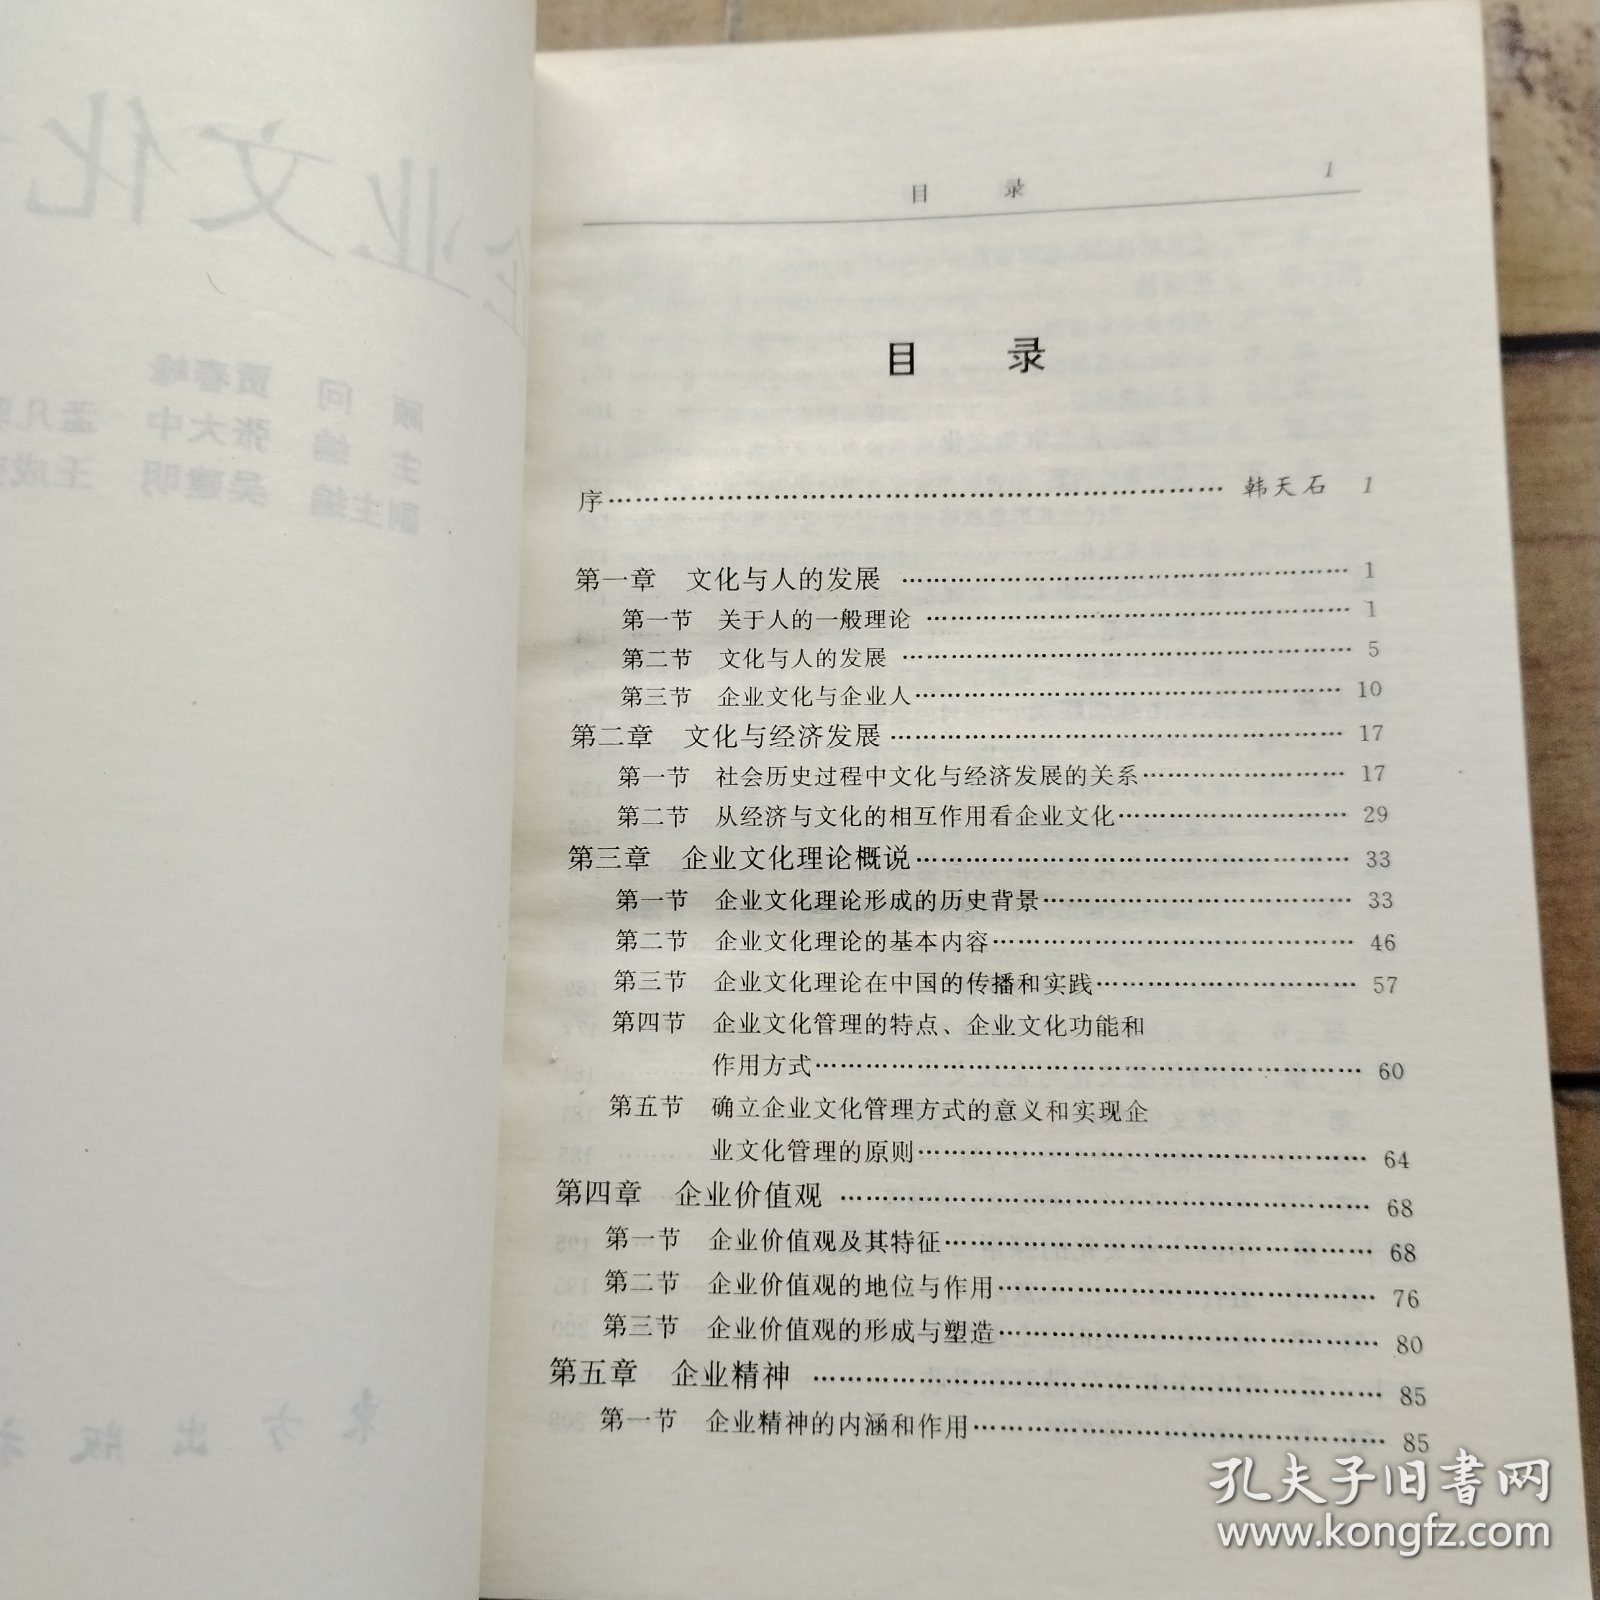 企业文化
顾 问 贾春峰
主 编 张大中 孟凡
副主编 吴建明 王成
東方出版
目 录 1
目 录
序…………………………………………………………… 韩天石 1
第一章 文化与人的发展 …………………………………………… 1
第一节 关于人的一般理论 ………………………………………… 1
第二节 文化与人的发展 …………………………………………… 5
第三节 企业文化与企业人………………………………………… 10
第二章 文化与经济发展 …………………………………………… 17
第一节 社会历史过程中文化与经济发展的关系…………………… 17
第二节 从经济与文化的相互作用看企业文化……………………… 29
第三章 企业文化理论概说………………………………………… 33
第一节 企业文化理论形成的历史背景……………………………… 33
第二节 企业文化理论的基本内容…………………………………… 46
第三节 企业文化理论在中国的传播和实践………………………… 57
第四节 企业文化管理的特点、企业文化功能和
作用方式…………………………………………………… 60
第五节 确立企业文化管理方式的意义和实现企
业文化管理的原则………………………………………… 64
第四章 企业价值观 ………………………………………………… 68
第一节 企业价值观及其特征………………………………………… 68
第二节 企业价值观的地位与作用…………………………………… 76
第三节 企业价值观的形成与塑造…………………………………… 80
第五章 企业精神 …………………………………………………… 85
第一节 企业精神的内涵和作用……………………………………… 85
孔夫子旧书网
www.kongfz.com